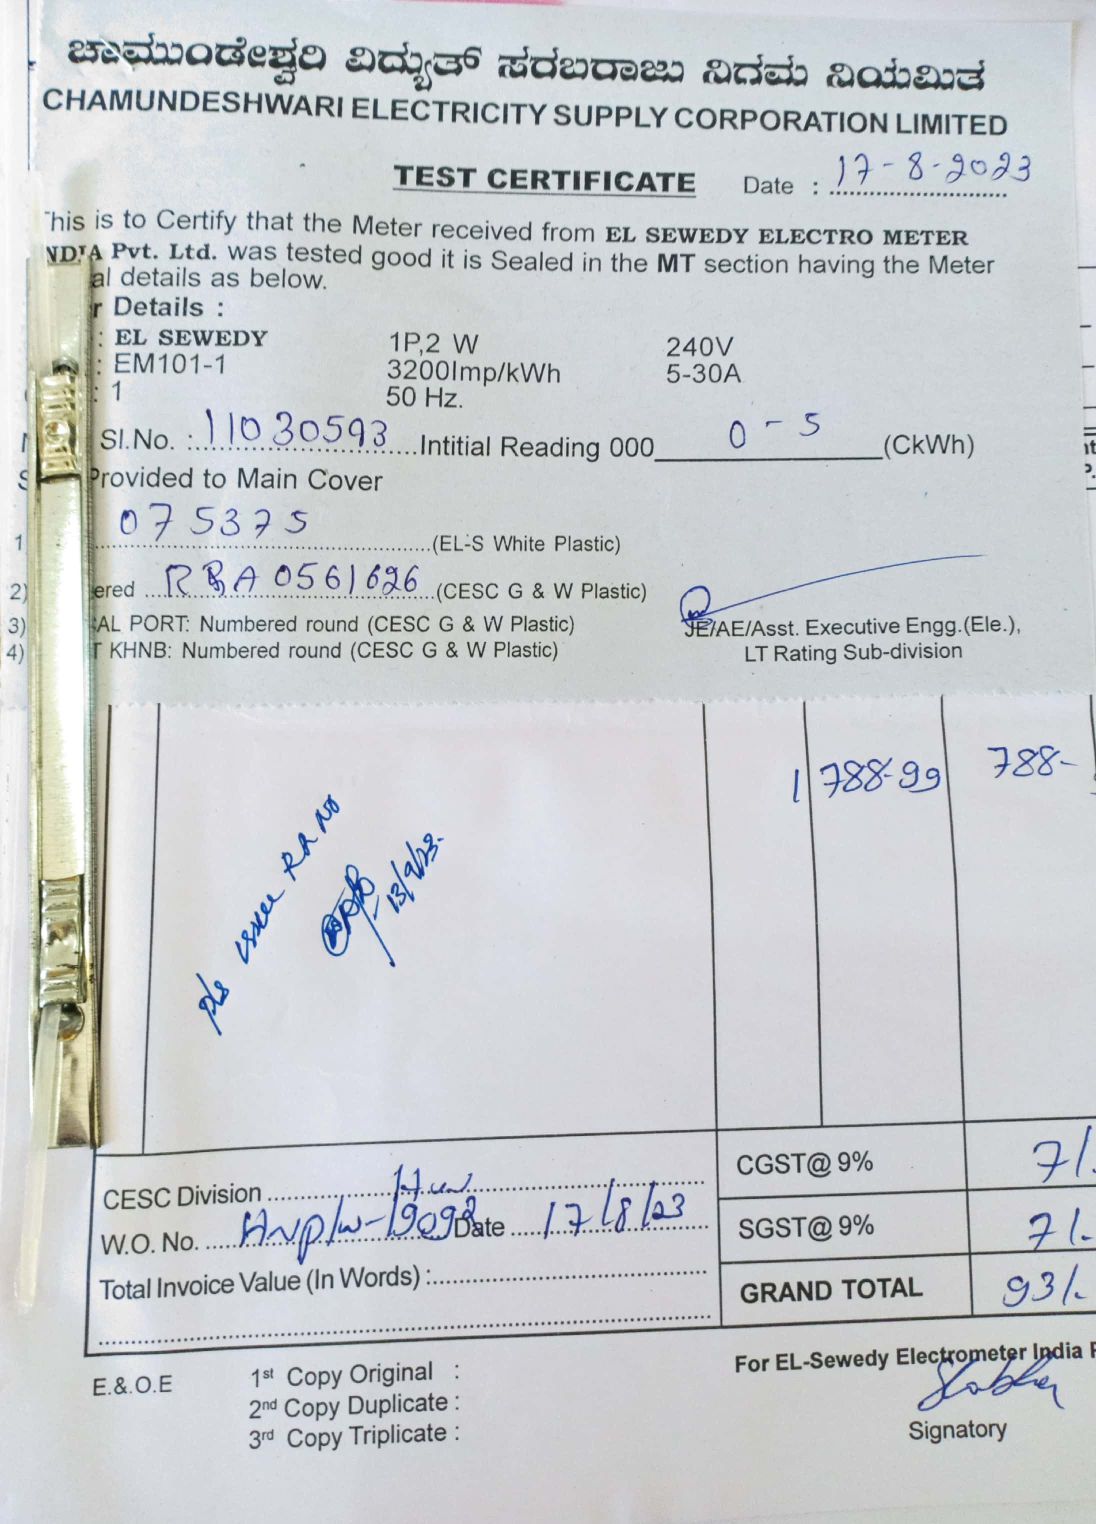 ಚಾಮುಂಡೇಶ್ವರಿ ವಿದ್ಯುತ್ ಸರಬರಾಜು ನಿಗಮ ನಿಯಮಿತ
CHAMUNDESHWARI ELECTRICITY SUPPLY CORPORATION LIMITED
TEST CERTIFICATE Date : 17-8-2023
This is to Certify that the Meter received from EL SEWEDY ELECTRO METER
NDIA Pvt. Ltd. was tested good it is Sealed in the MT section having the Meter
al details as below.
r Details :
: EL SEWEDY 1P,2 W 240V
: EM101-1 3200Imp/kWh 5-30A
: 1 50 Hz.
Sl.No. : 11030593 Intitial Reading 000 0-5 (CkWh)
Provided to Main Cover
1 075375 (EL-S White Plastic)
2) ered RBA0561626 (CESC G & W Plastic)
3) AL PORT: Numbered round (CESC G & W Plastic) JE/AE/Asst. Executive Engg.(Ele.),
4) T KHNB: Numbered round (CESC G & W Plastic) LT Rating Sub-division
1 788-99 788-
pls issue RR No
13/9/23.
CGST@ 9% 71.
CESC Division Hun
W.O. No. Date 17/8/23 SGST@ 9% 71.
Total Invoice Value (In Words) : GRAND TOTAL 931.
For EL-Sewedy Electrometer India P
E.&.O.E 1st Copy Original :
2nd Copy Duplicate :
3rd Copy Triplicate : Signatory